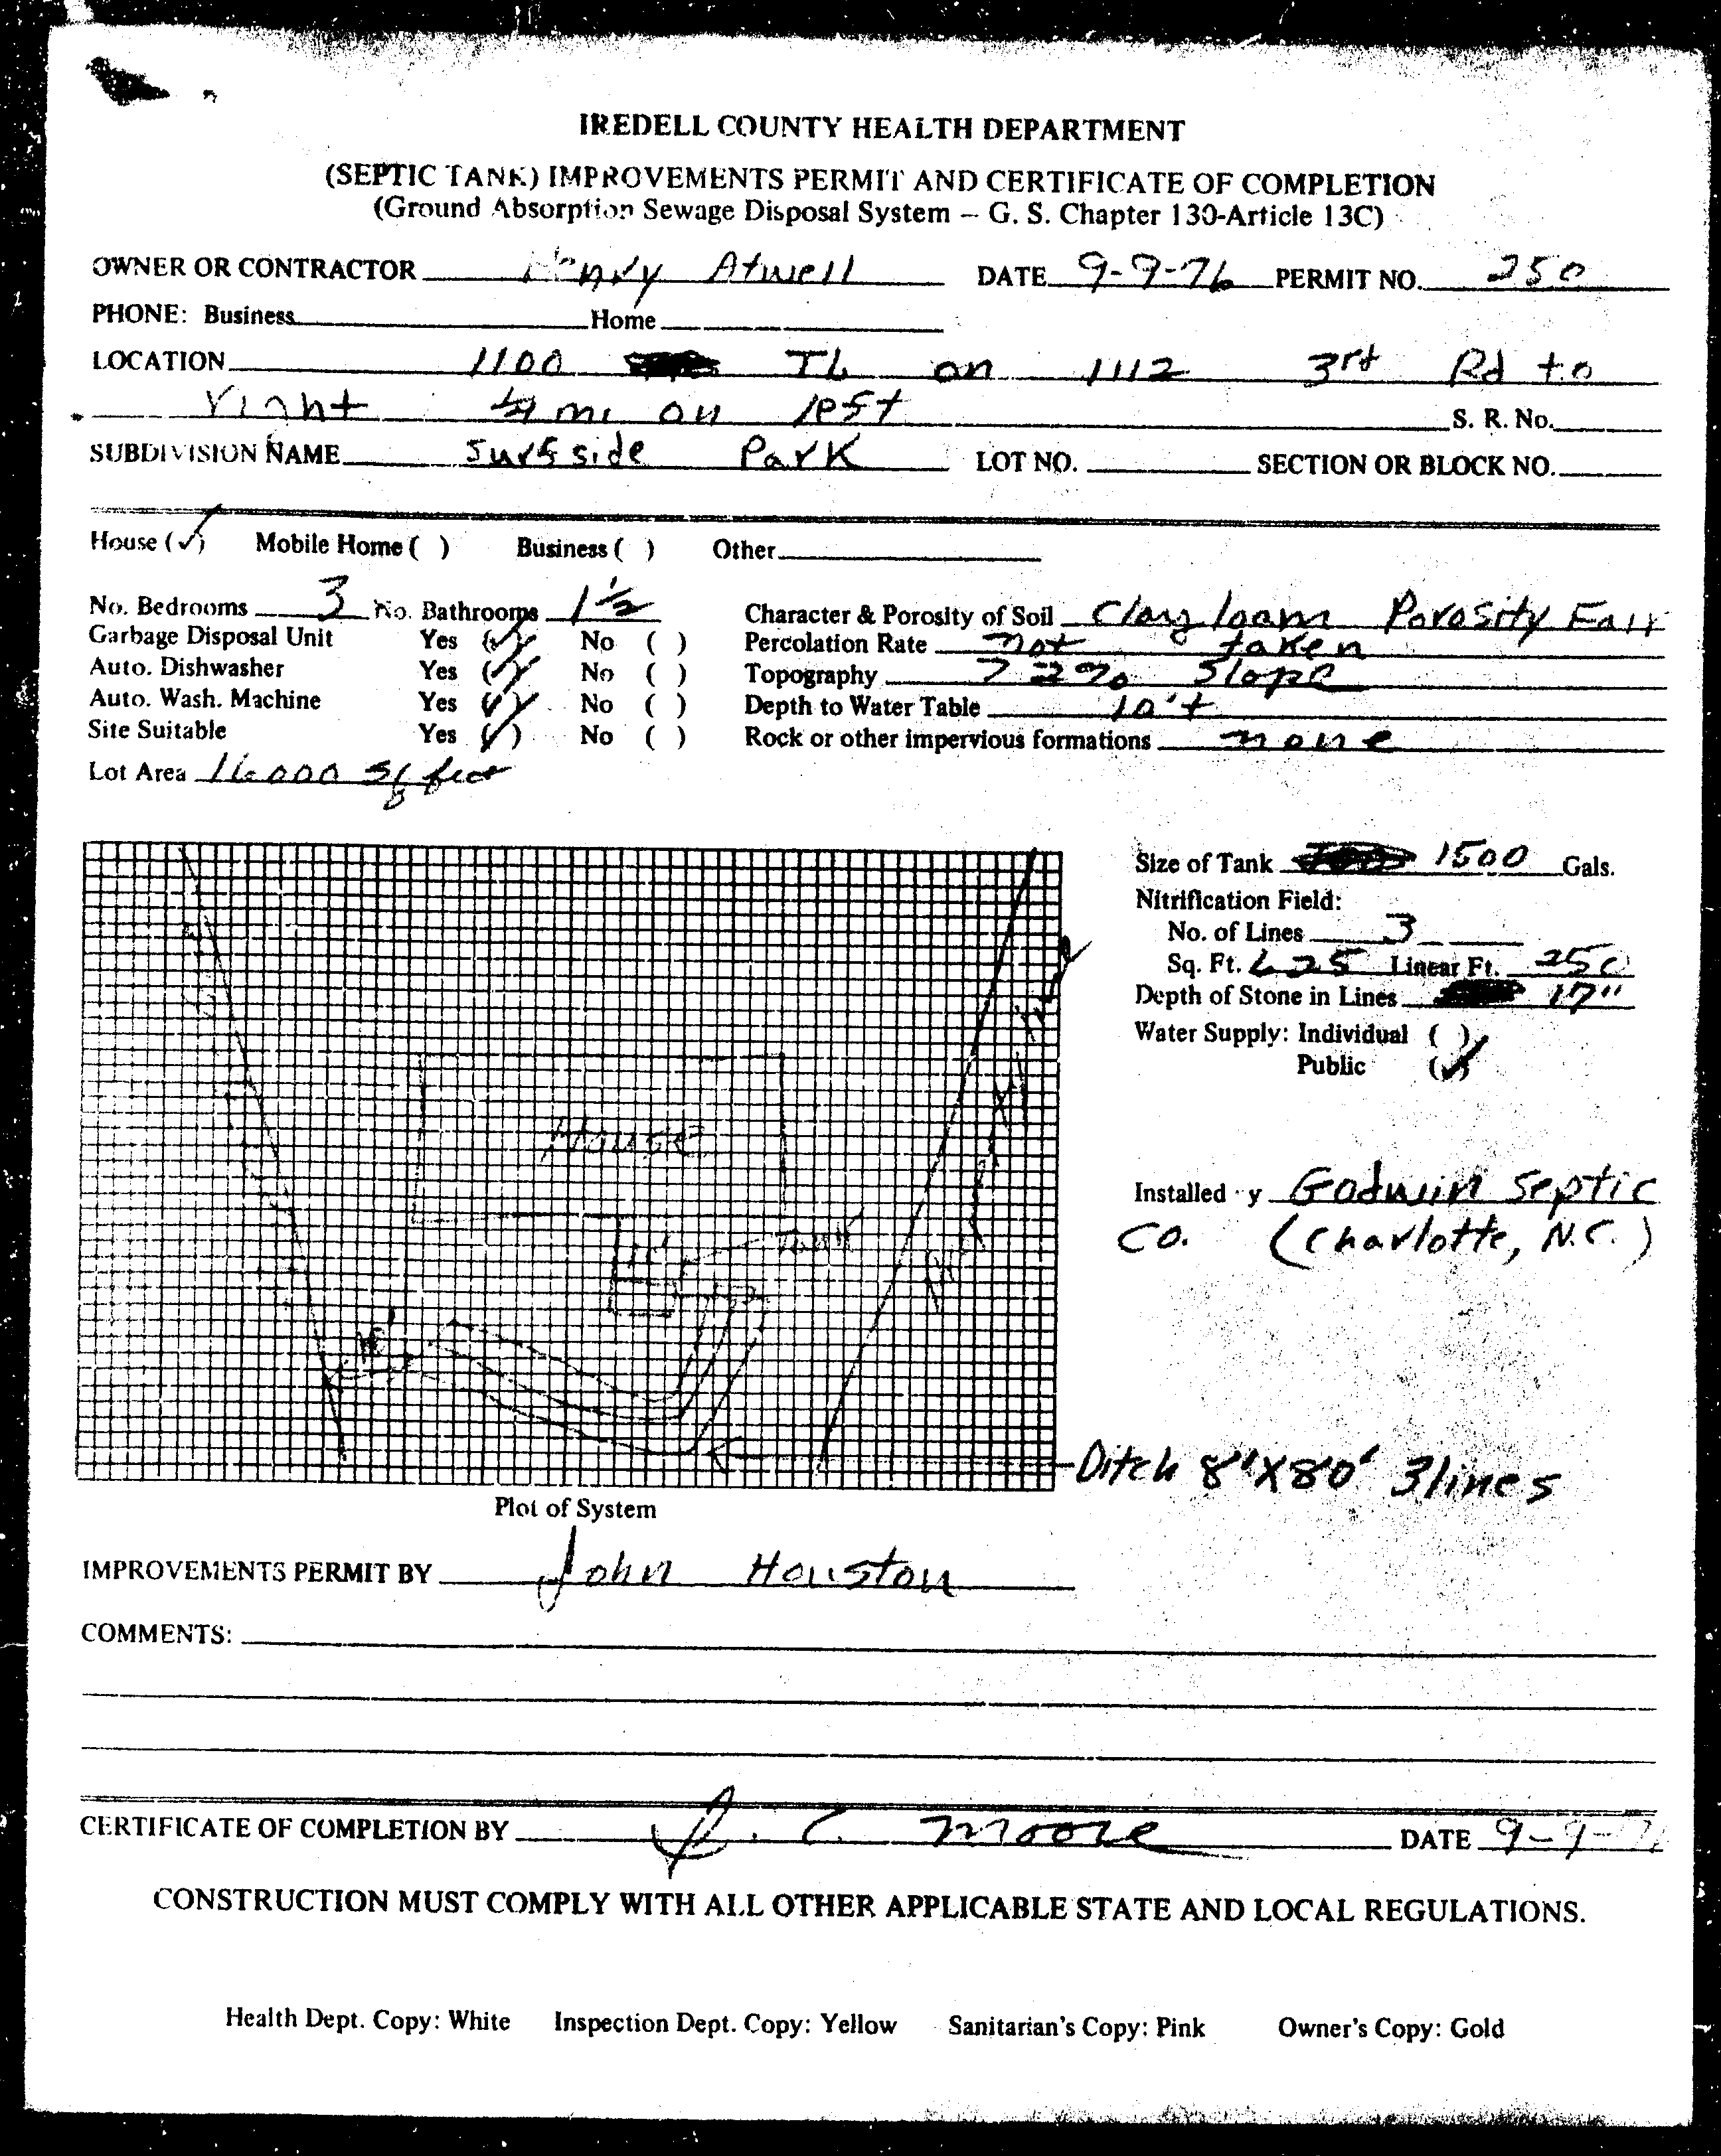 IREDELL COUNTY HEALTH DEPARTMENT
(SEPTIC TANK) IMPROVEMENTS PERMIT AND CERTIFICATE OF COMPLETION
(Ground Absorption Sewage Disposal System – G. S. Chapter 130-Article 13C)
OWNER OR CONTRACTOR Henry Atwell DATE 9-9-76 PERMIT NO. 250
PHONE: Business Home
LOCATION 1100 TL on 1112 3rd Rd to
right mi on left S. R. No.
SUBDIVISION NAME Surfside Park LOT NO. SECTION OR BLOCK NO.
House (✓) Mobile Home ( ) Business ( ) Other
No. Bedrooms 3 No. Bathrooms 1 1/2 Character & Porosity of Soil Clay loam Porosity Fair
Garbage Disposal Unit Yes (✓) No ( ) Percolation Rate not taken
Auto. Dishwasher Yes (✓) No ( ) Topography 22% Slope
Auto. Wash. Machine Yes (✓) No ( ) Depth to Water Table 10'+
Site Suitable Yes (✓) No ( ) Rock or other impervious formations none
Lot Area 16000 sq feet
Size of Tank 1500 Gals.
Nitrification Field:
No. of Lines 3
Sq. Ft. 625 Linear Ft. 250
Depth of Stone in Lines 17"
Water Supply: Individual ( )
Public (✓)
House
Installed y Godwin Septic
Co. (Charlotte, N.C.)
Tank
10'
Ditch 8"X80' 3lines
Plot of System
IMPROVEMENTS PERMIT BY John Houston
COMMENTS:
CERTIFICATE OF COMPLETION BY J. C. Moore DATE 9-9-76
CONSTRUCTION MUST COMPLY WITH ALL OTHER APPLICABLE STATE AND LOCAL REGULATIONS.
Health Dept. Copy: White Inspection Dept. Copy: Yellow Sanitarian's Copy: Pink Owner's Copy: Gold